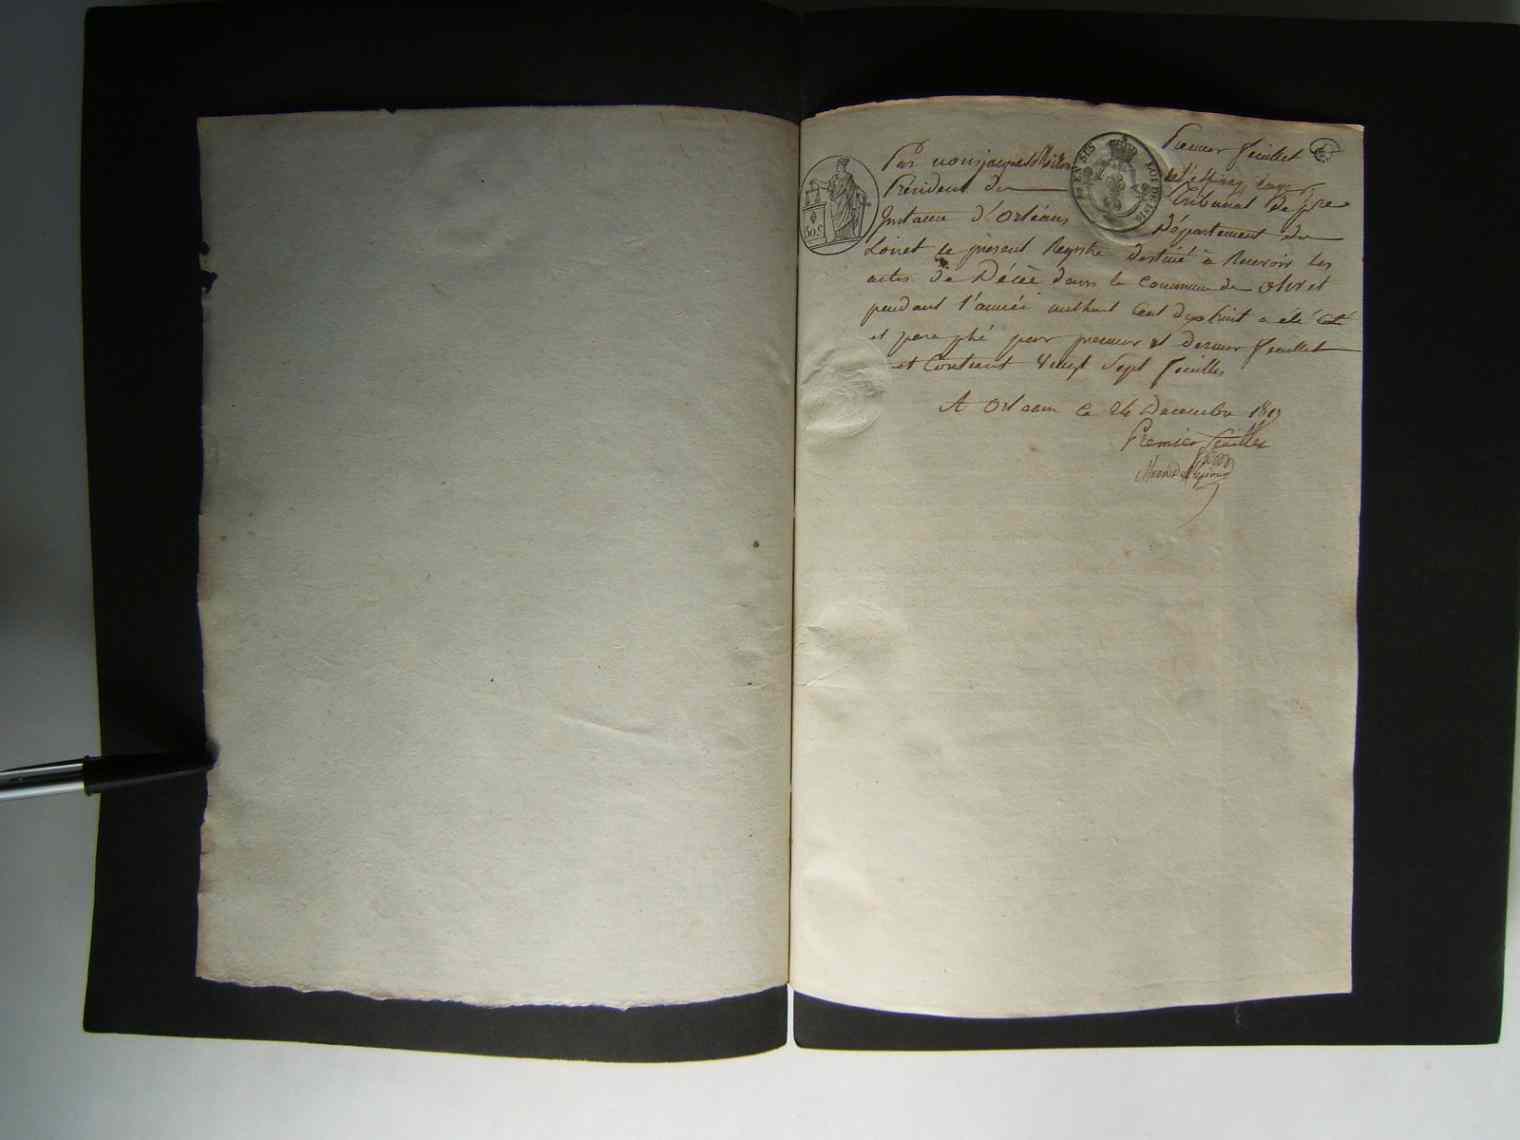 Premier feuillet
Par nous jacques
Président du Tribunal de 1ere
Instance d'Orléans Département du
Loiret le présent Registre destiné à Recevoir les
actes de Décès dans la Commune de olivet
pendant l'année mil huit Cent dix huit a été Coté
et paraphé par premier et dernier feuillet
et Contient Vingt Sept feuilles
A Orleans ce 24 Decembre 1817
Premier feuillet
50 C
EN SUS
LOI DE 1816